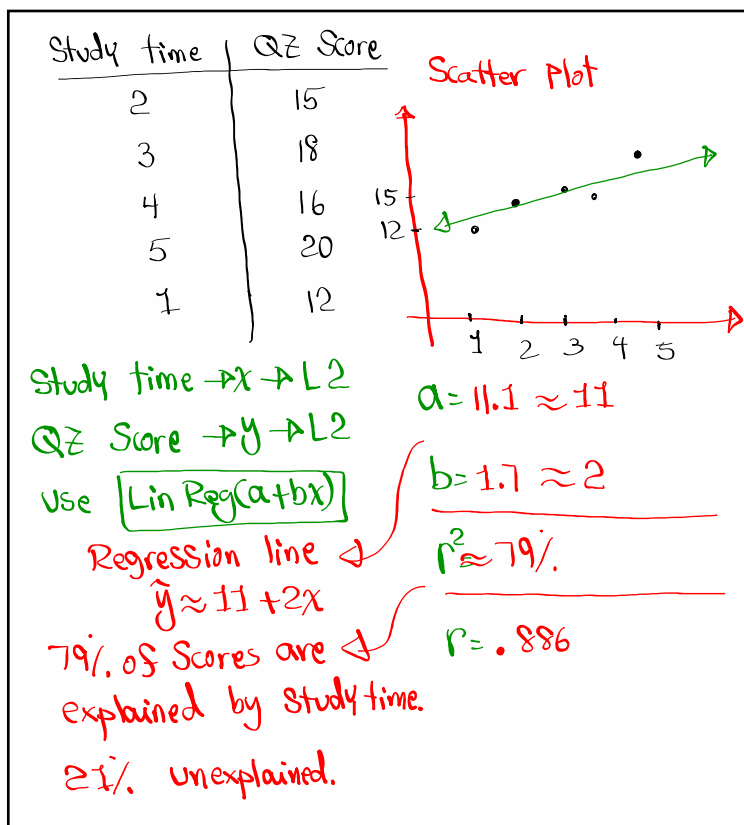 Study time QZ Score
2 15
3 18
4 16
5 20
1 12
Scatter Plot
15
12
1 2 3 4 5
Study time → x → L2
QZ Score → y → L2
Use Lin Reg(a+bx)
Regression line
ŷ ≈ 11 + 2x
79% of Scores are
explained by Study time.
21% unexplained.
a = 11.1 ≈ 11
b = 1.7 ≈ 2
r² ≈ 79%
r = .886